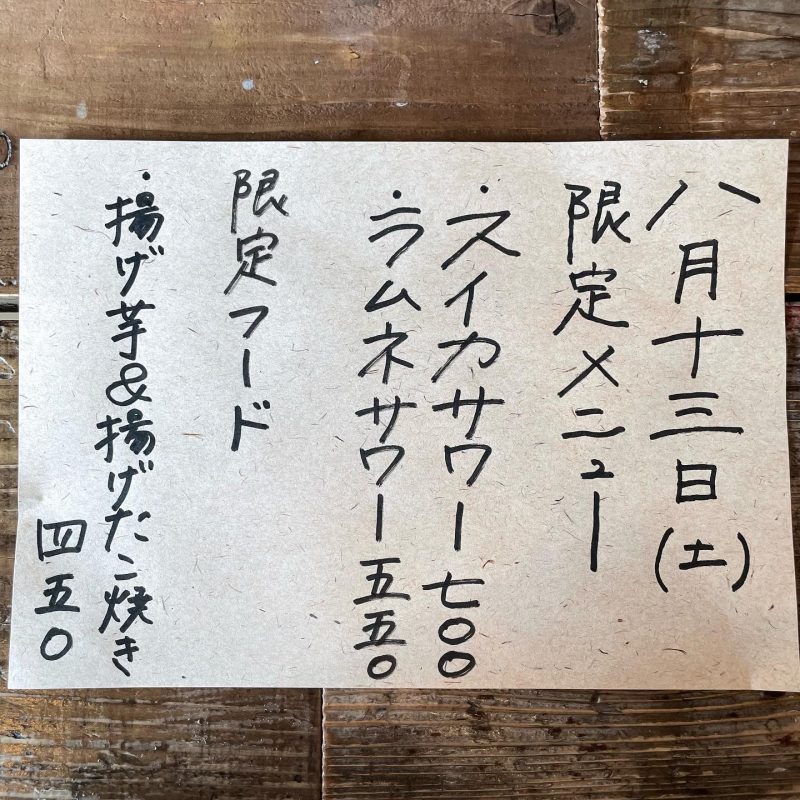 八月十三日(土)
限定メニュー
・スイカサワー七〇〇
・ラムネサワー五五〇
限定フード
・揚げ芋&揚げたこ焼き
四五〇